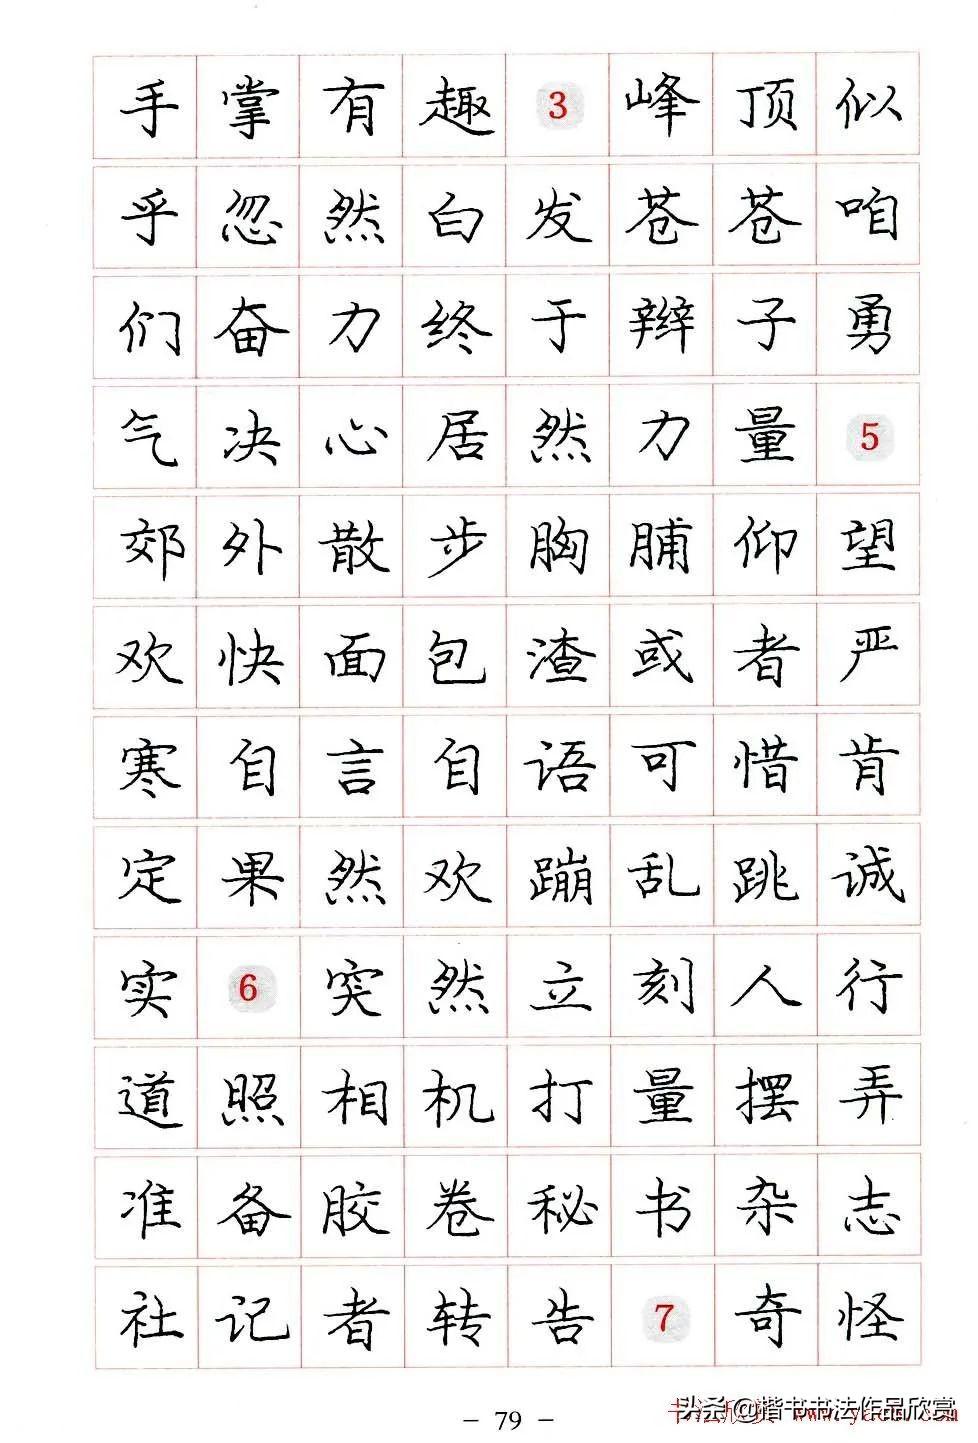 手掌有趣3峰顶似
乎忽然白发苍苍咱
们奋力终于辫子勇
气决心居然力量5
郊外散步胸脯仰望
欢快面包渣或者严
寒自言自语可惜肯
定果然欢蹦乱跳诚
实6突然立刻人行
道照相机打量摆弄
准备胶卷秘书杂志
社记者转告7奇怪
- 79 -
头条@楷书书法作品欣赏